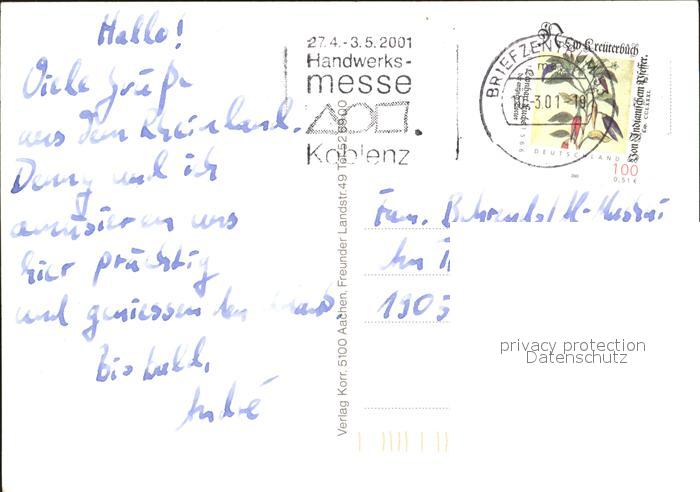 Hallo!
Viele Grüße
aus dem Rheinland.
Denny und ich
amüsieren uns
hier prächtig
und geniessen den
Bis bald,
André
27.4.-3.5.2001
Handwerks-
messe
Koblenz
Verlag Korr. 5100 Aachen, Freunder Landstr.49 Tel.52 69 00
BRIEFZENTRUM
-3.01-19
New Kreüterbüch
Von Indianischem Pfeffer.
Cap. CCLXXXI.
DEUTSCHLAND
100
0,51€
Fam.
Am
1905
privacy protection
Datenschutz